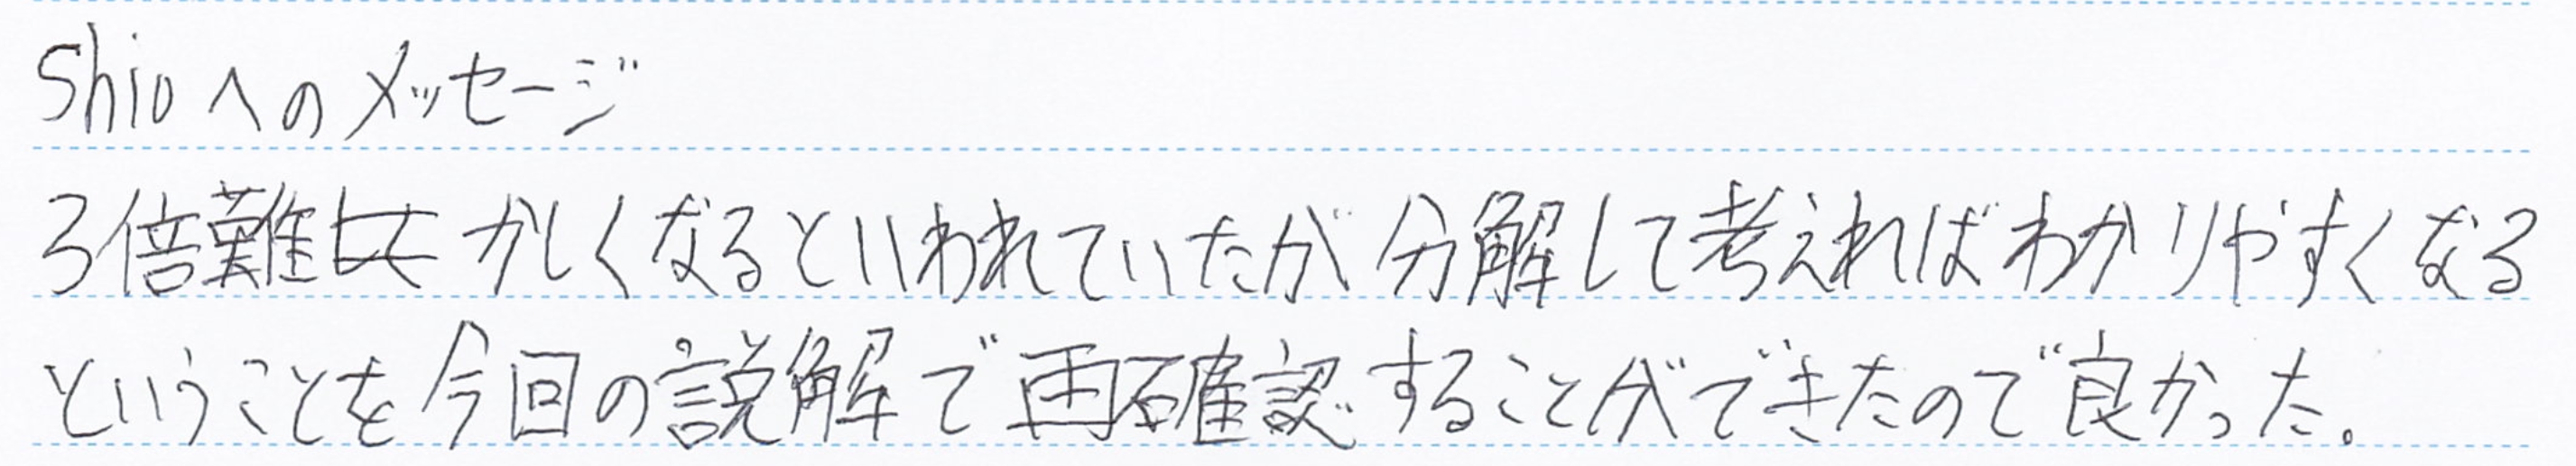 Shioへのメッセージ
3倍難かしくなるといわれていたが分解して考えればわかりやすくなる
ということを今回の説解で再確認することができたので良かった。